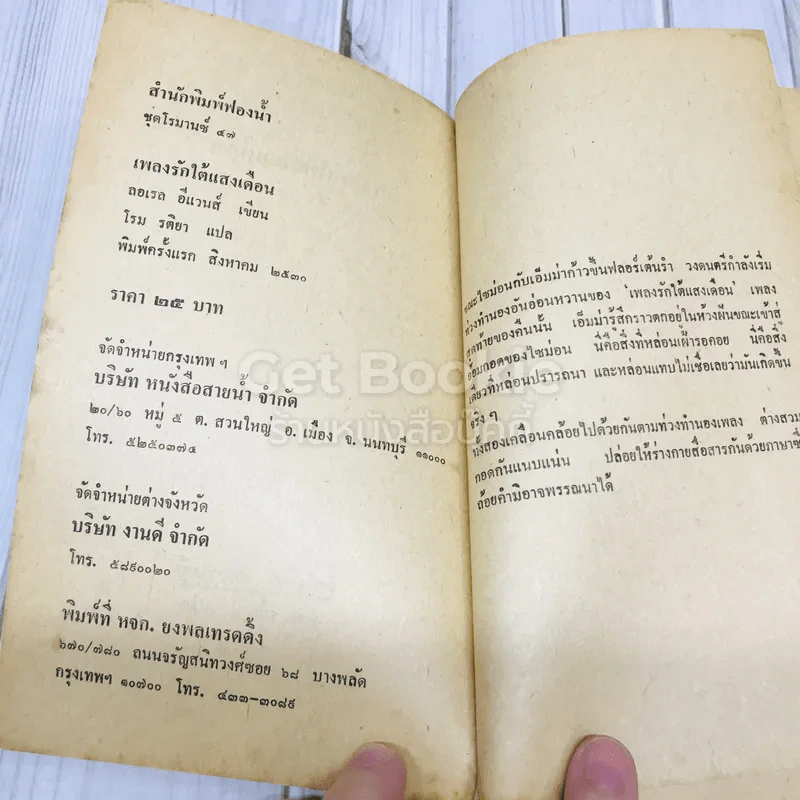 สำนักพิมพ์ฟองน้ำ
ชุดโรมานซ์ ๔๗
เพลงรักใต้แสงเดือน
ลอเรล อีแวนส์ เขียน
โรม รติยา แปล
พิมพ์ครั้งแรก สิงหาคม ๒๕๓๐
ราคา ๒๕ บาท
จัดจำหน่ายกรุงเทพ ฯ
บริษัท หนังสือสายน้ำ จำกัด
๒๐/๖๐ หมู่ ๕ ต. สวนใหญ่ อ. เมือง จ. นนทบุรี ๑๑๐๐๐
โทร. ๕๒๕๐๓๗๔
จัดจำหน่ายต่างจังหวัด
บริษัท งานดี จำกัด
โทร. ๕๘๙๐๐๒๐
พิมพ์ที่ หจก. ยงพลเทรดดิ้ง
๖๗๐/๗๘๐ ถนนจรัญสนิทวงศ์ซอย ๖๘ บางพลัด
กรุงเทพฯ ๑๐๗๐๐ โทร. ๔๓๓-๓๐๘๙
ขณะไซม่อนกับเอ็มม่าก้าวขึ้นฟลอร์เต้นรำ วงดนตรีกำลังเริ่ม
ท่วงทำนองอันอ่อนหวานของ 'เพลงรักใต้แสงเดือน' เพลง
สุดท้ายของคืนนั้น เอ็มม่ารู้สึกราวตกอยู่ในห้วงฝันขณะเข้าสู่
อ้อมกอดของไซม่อน นี่คือสิ่งที่หล่อนเฝ้ารอคอย นี่คือสิ่ง
เดียวที่หล่อนปรารถนา และหล่อนแทบไม่เชื่อเลยว่ามันเกิดขึ้น
จริง ๆ
ทั้งสองเคลื่อนคล้อยไปด้วยกันตามท่วงทำนองเพลง ต่างสวม
กอดกันแนบแน่น ปล่อยให้ร่างกายสื่อสารกันด้วยภาษาซึ่
ถ้อยคำมิอาจพรรณนาได้
Get Bookie
ร้านหนังสือบุ๊คกี้